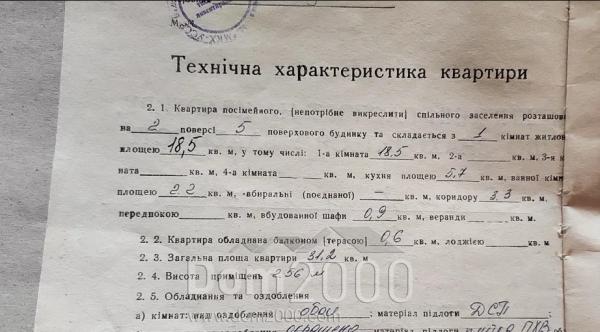 МКХ-УССР
Технічна характеристика квартири
2. 1. Квартира посімейного, [непотрібне викреслити] спільного заселення розташова
на 2 поверсі 5 поверхового будинку та складається з 1 кімнат житлов
площею 18,5 кв. м, у тому числі: 1-а кімната 18,5 кв. м, 2-а кв. м, 3-я к
ната кв. м, 4-а кімната кв. м, кухня площею 5,7 кв. м, ванної кімн
площею 2.2 кв. м, вбиральні (поєднаної) — кв. м, коридору 3.3 кв. м,
передпокою кв. м, вбудованної шафи 0,9 кв. м, веранди кв. м.
2. 2. Квартира обладнана балконом [терасою] 0,6 кв. м, лоджією кв. м
2. 3. Загальна площа квартири 31.2 кв. м
2. 4. Висота приміщень 2.56 м
2. 5. Обладнання та оздоблення
а) кімнат: вид оздоблення обои ; матеріал підлоги ДСП ;
Dom2000
www.dom2000.com